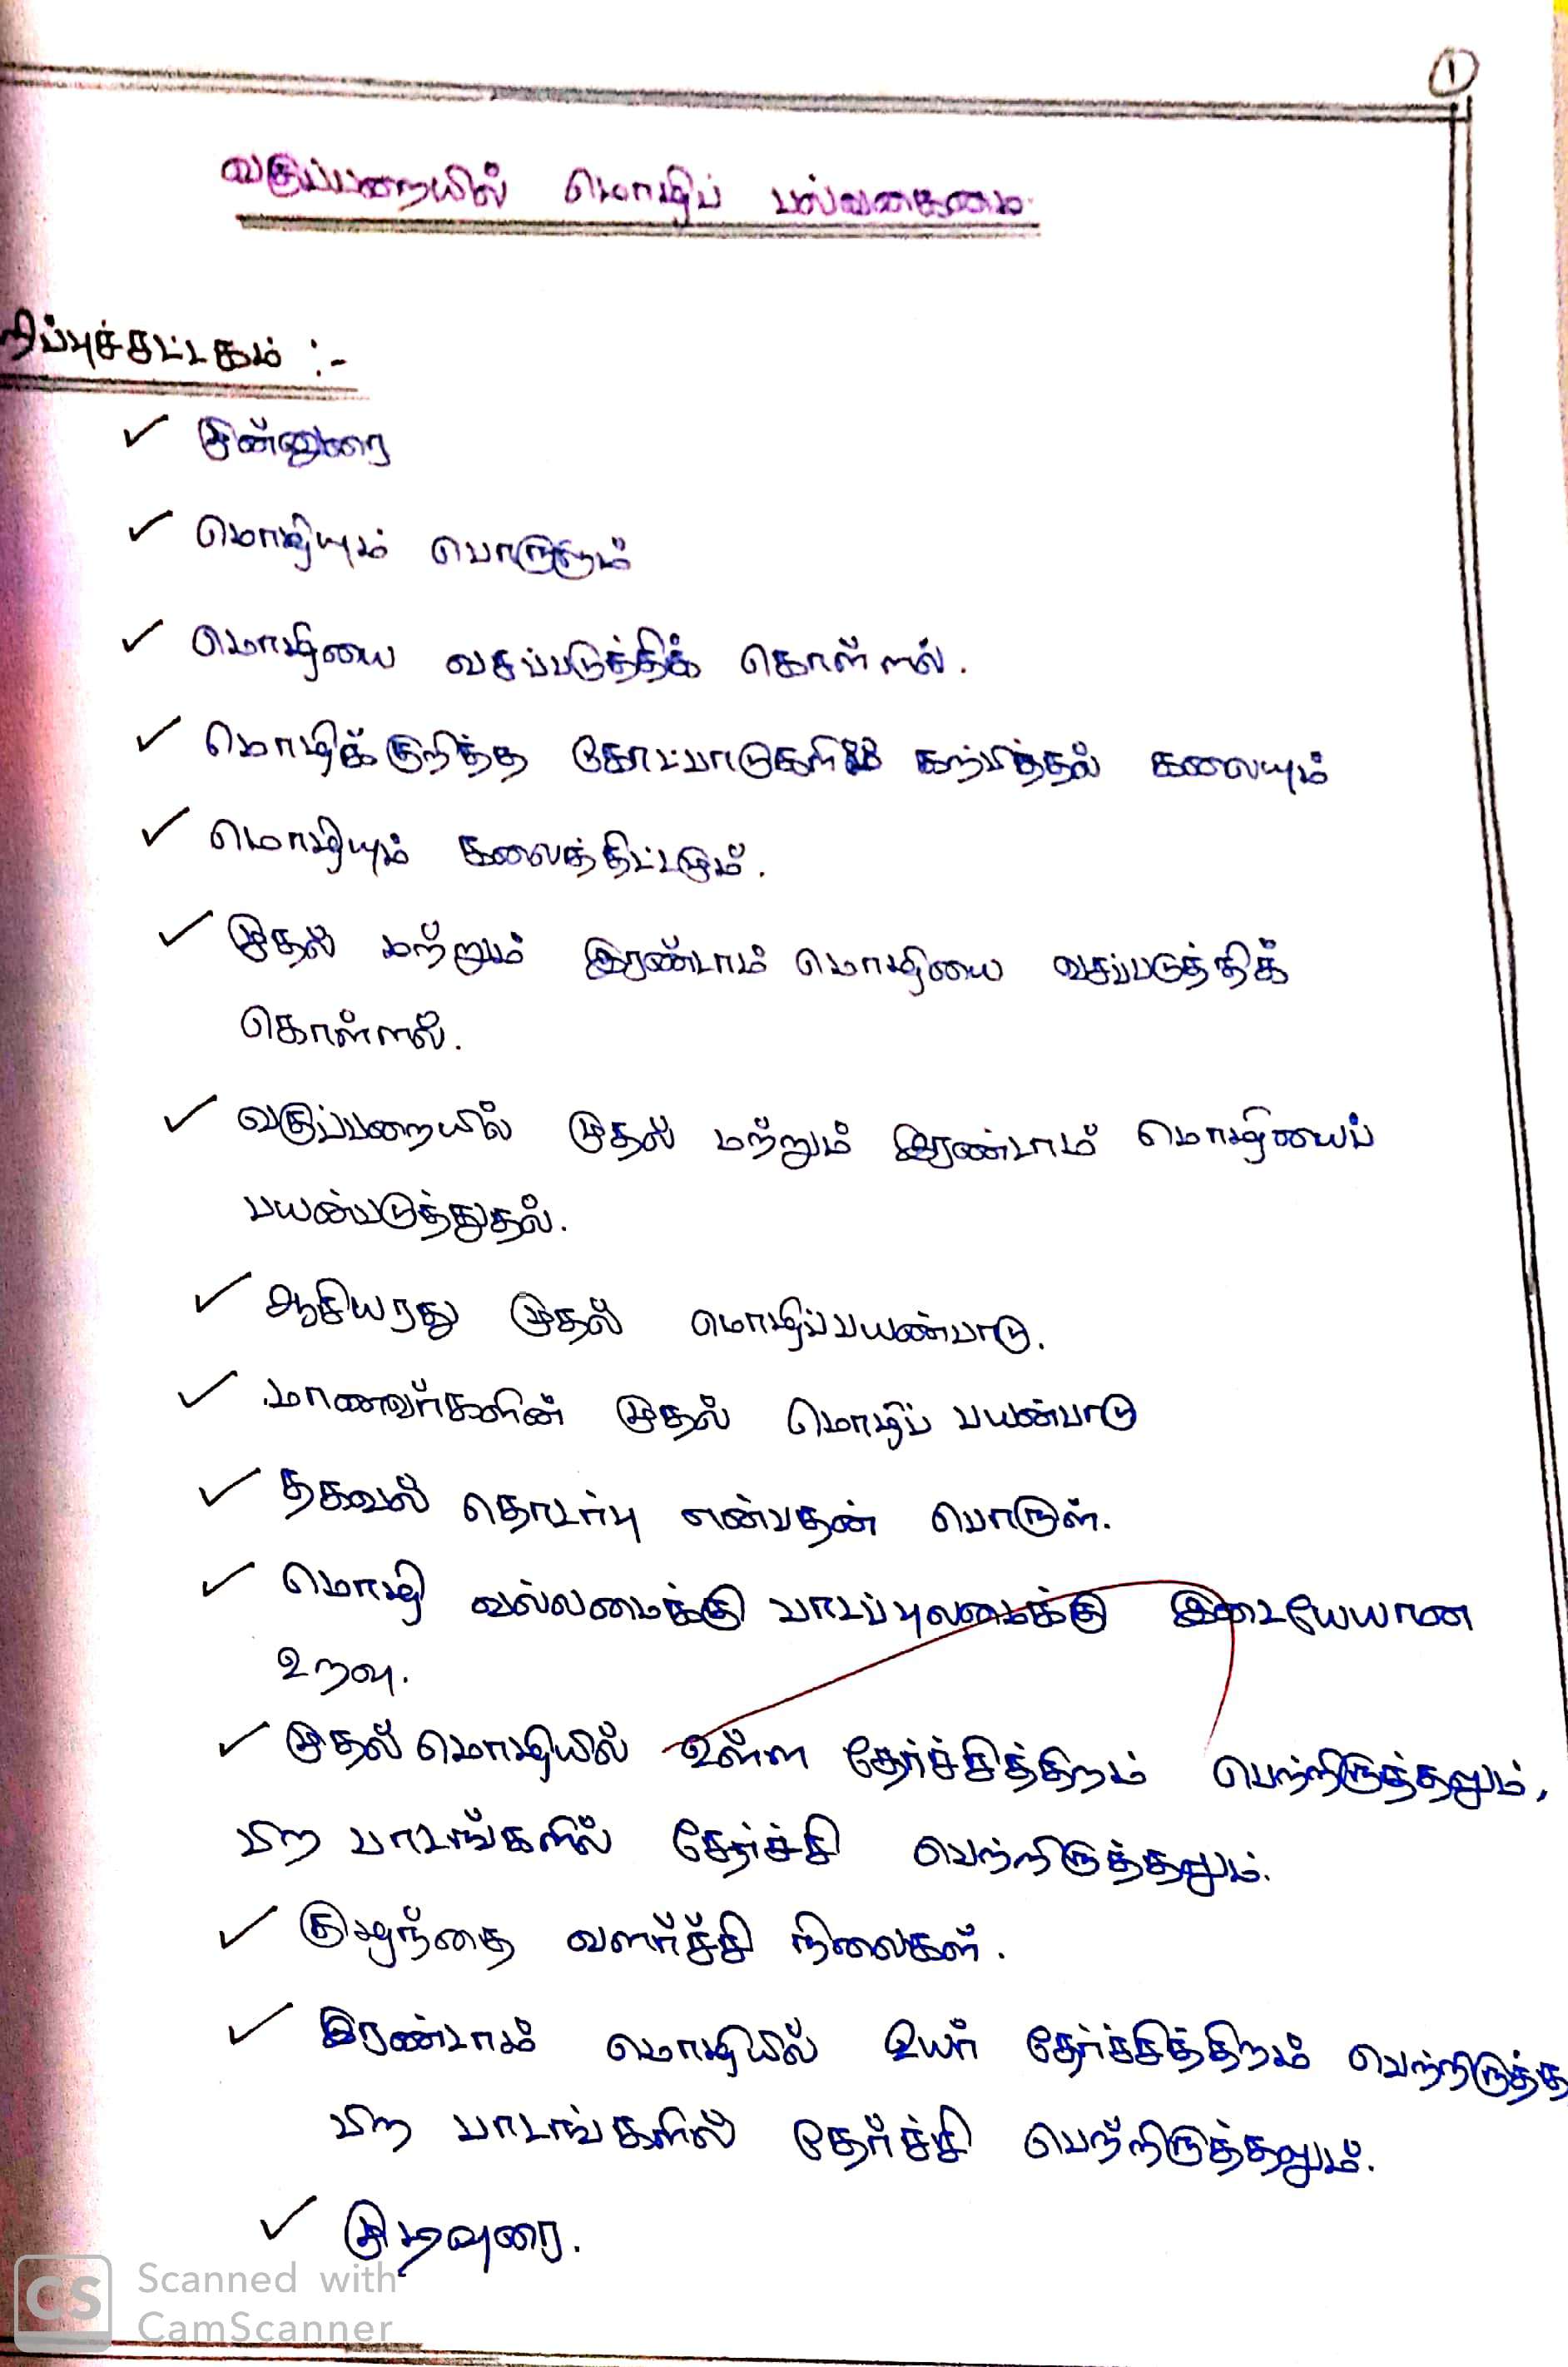 1
வகுப்பறையில் மொழிப் பல்வகைமை
றிப்புச்சட்டகம் :-
✓ முன்னுரை
✓ மொழியும் பொருளும்
✓ மொழியை வசப்படுத்திக் கொள்ளல்.
✓ மொழிக்குறித்த கற்பித்தல் கலையும்
✓ மொழியும் கலைத்திட்டமும்.
✓ முதல் மற்றும் இரண்டாம் மொழியை வசப்படுத்திக்
கொள்ளல்.
✓ வகுப்பறையில் முதல் மற்றும் இரண்டாம் மொழியைப்
பயன்படுத்துதல்.
✓ ஆசியரது முதல் மொழிப்பயண்பாடு.
✓ மாணவர்களின் முதல் மொழிப் பயன்பாடு
✓ தகவல் தொடர்பு என்பதன் பொருள்.
✓ மொழி வல்லமைக்கு பாடப்புலமைக்கு இடையேயான
உறவு.
✓ முதல் மொழியில் உள்ள தேர்ச்சித்திறம் பெற்றிருத்தலும்,
பிற பாடங்களில் தேர்ச்சி பெற்றிருத்தலும்.
✓ குழந்தை வளர்ச்சி நிலைகள்.
✓ இரண்டாம் மொழியில் உயர் தேர்ச்சித்திறம் பெற்றிருத்த
பிற பாடங்களில் தேர்ச்சி பெற்றிருத்தலும்.
✓ முடிவுரை.
CS Scanned with
CamScanner